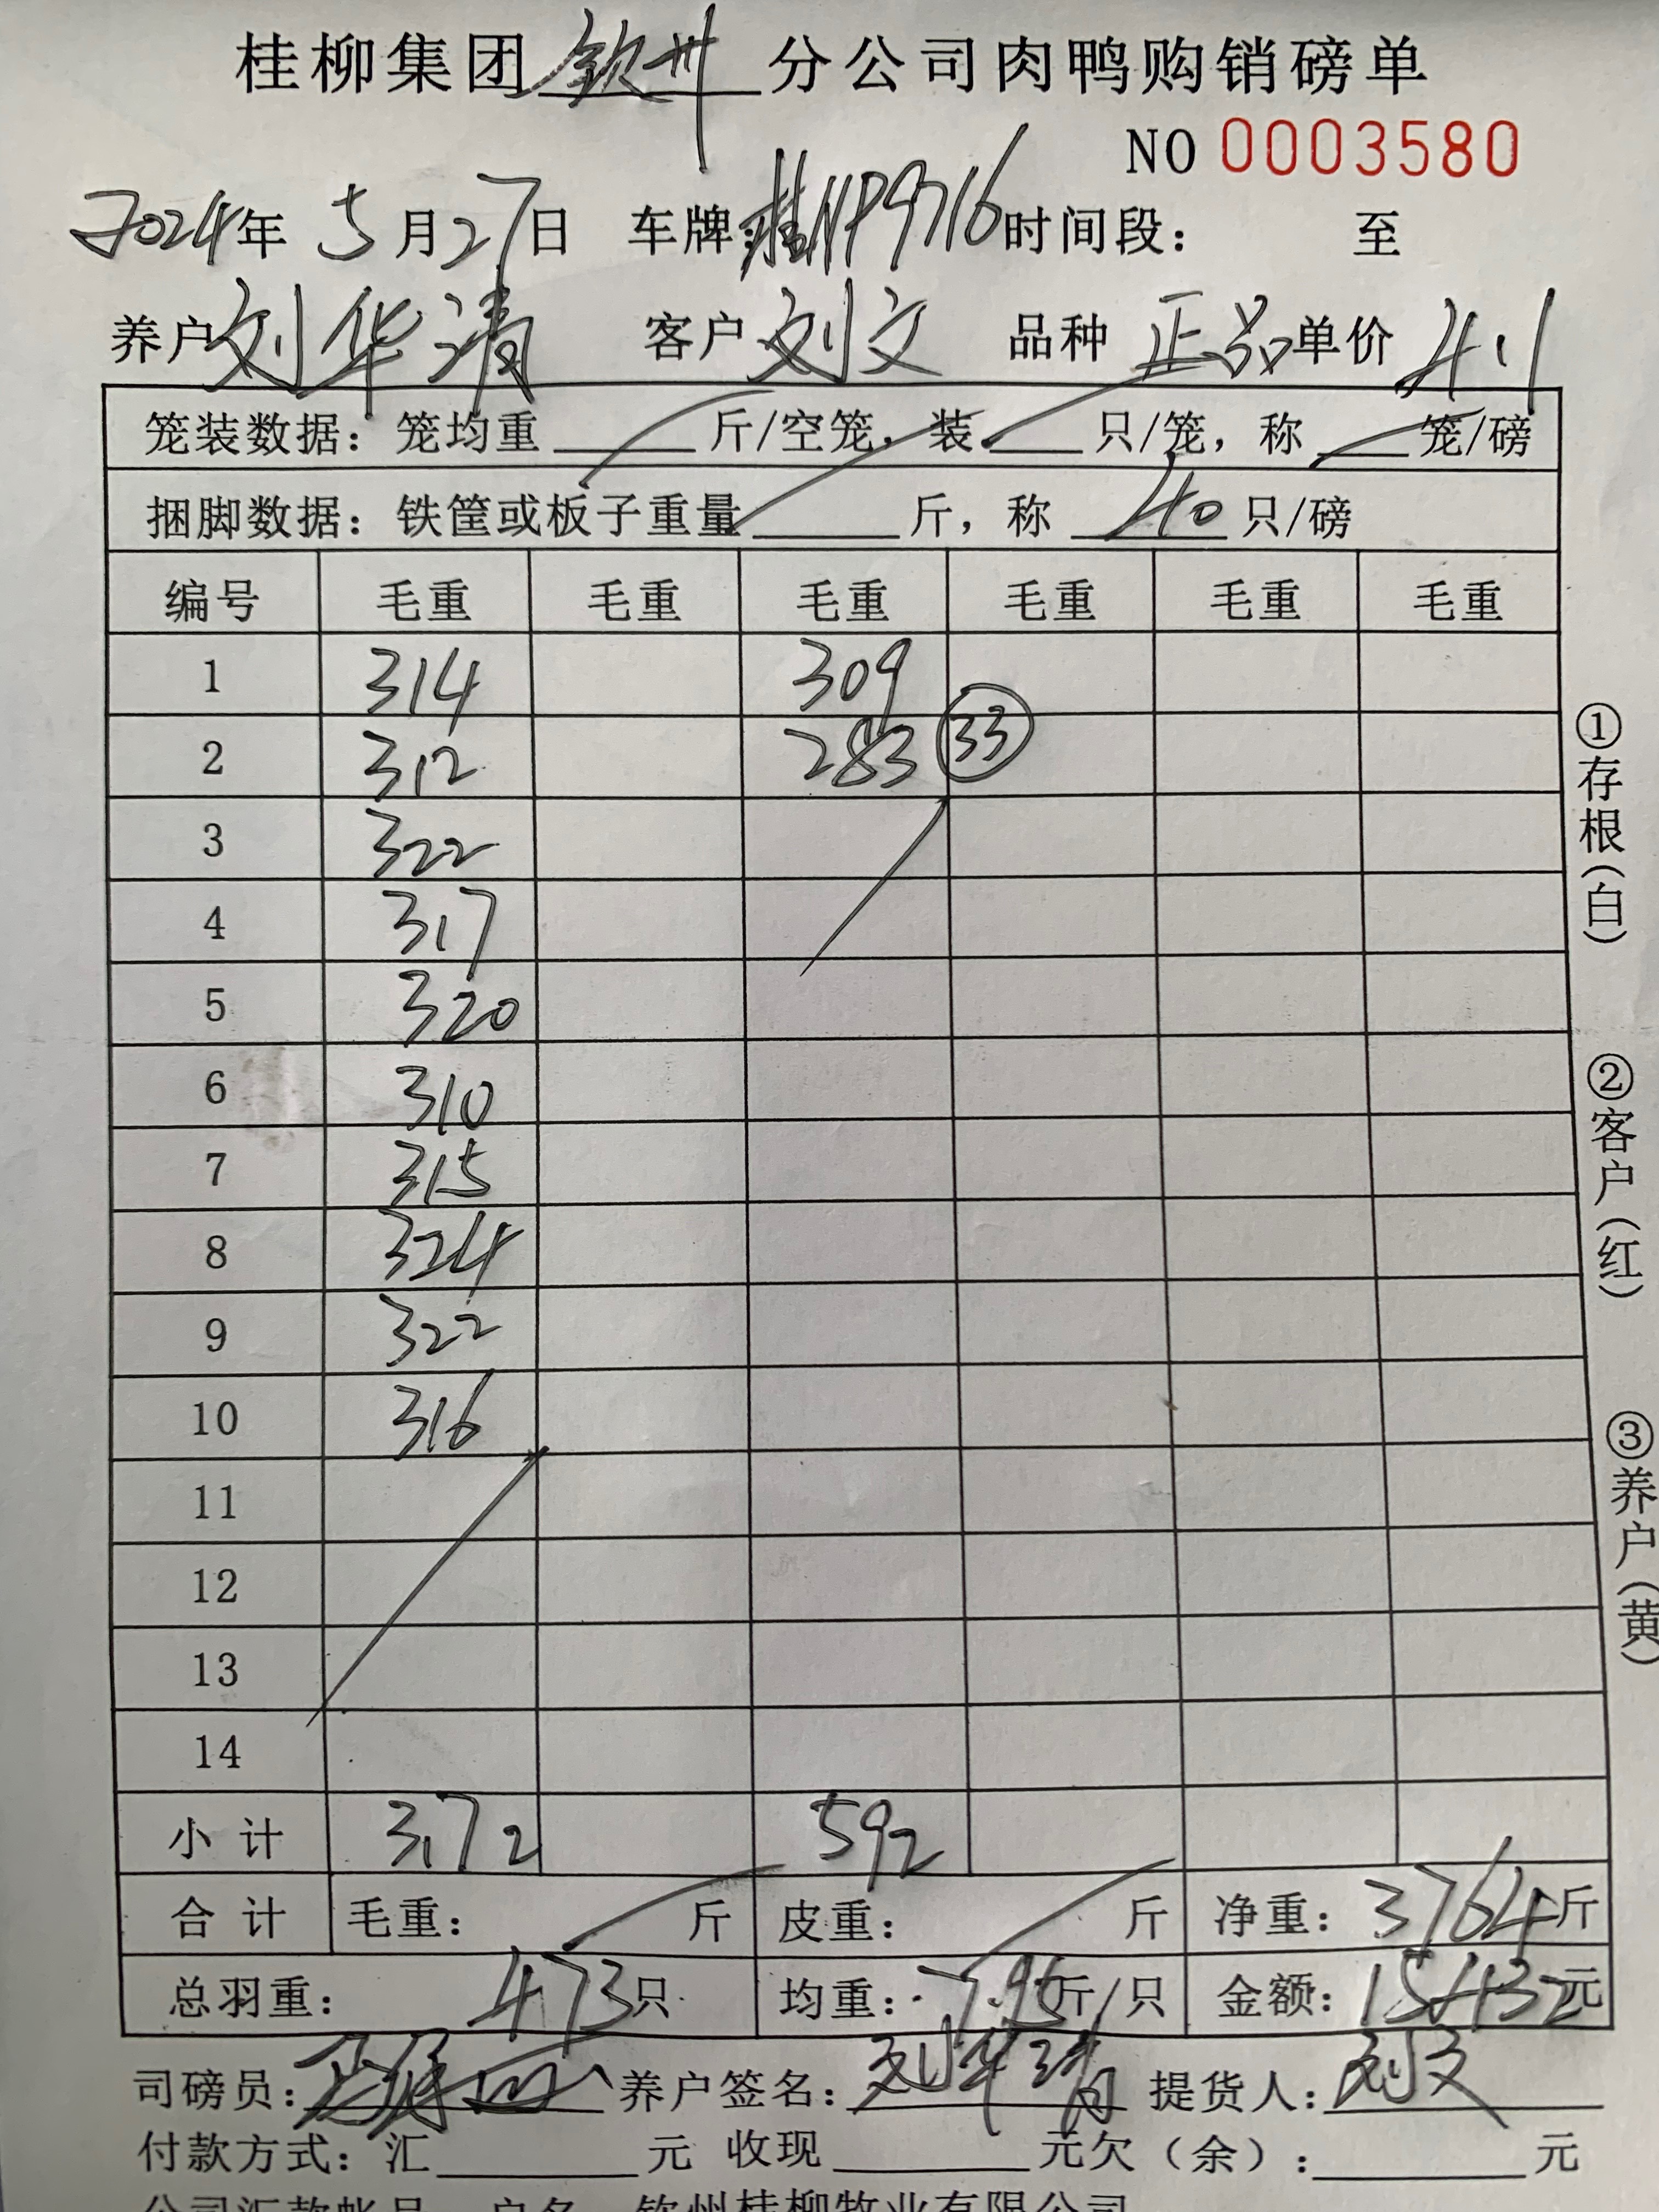 桂柳集团 钦州 分公司肉鸭购销磅单
NO 0003580
2024年 5月27日 车牌:桂NP9716 时间段: 至
养户 刘华清 客户 刘文 品种 正品 单价 4.1
笼装数据: 笼均重 斤/空笼, 装 只/笼, 称 笼/磅
捆脚数据: 铁筐或板子重量 斤, 称 40 只/磅
编号 毛重 毛重 毛重 毛重 毛重 毛重
1 314 309
2 312 283 33
3 322
4 317
5 320
6 310
7 315
8 324
9 322
10 316
11
12
13
14
小计 3172 592
合计 毛重: 斤 皮重: 斤 净重: 3764斤
总羽重: 473只 均重: 7.95斤/只 金额: 15432元
司磅员: 养户签名: 刘华清 提货人: 刘文
付款方式: 汇 元 收现 元欠(余): 元
公司汇款帐号 户名 钦州桂柳牧业有限公司
①存根(白)
②客户(红)
③养户(黄)